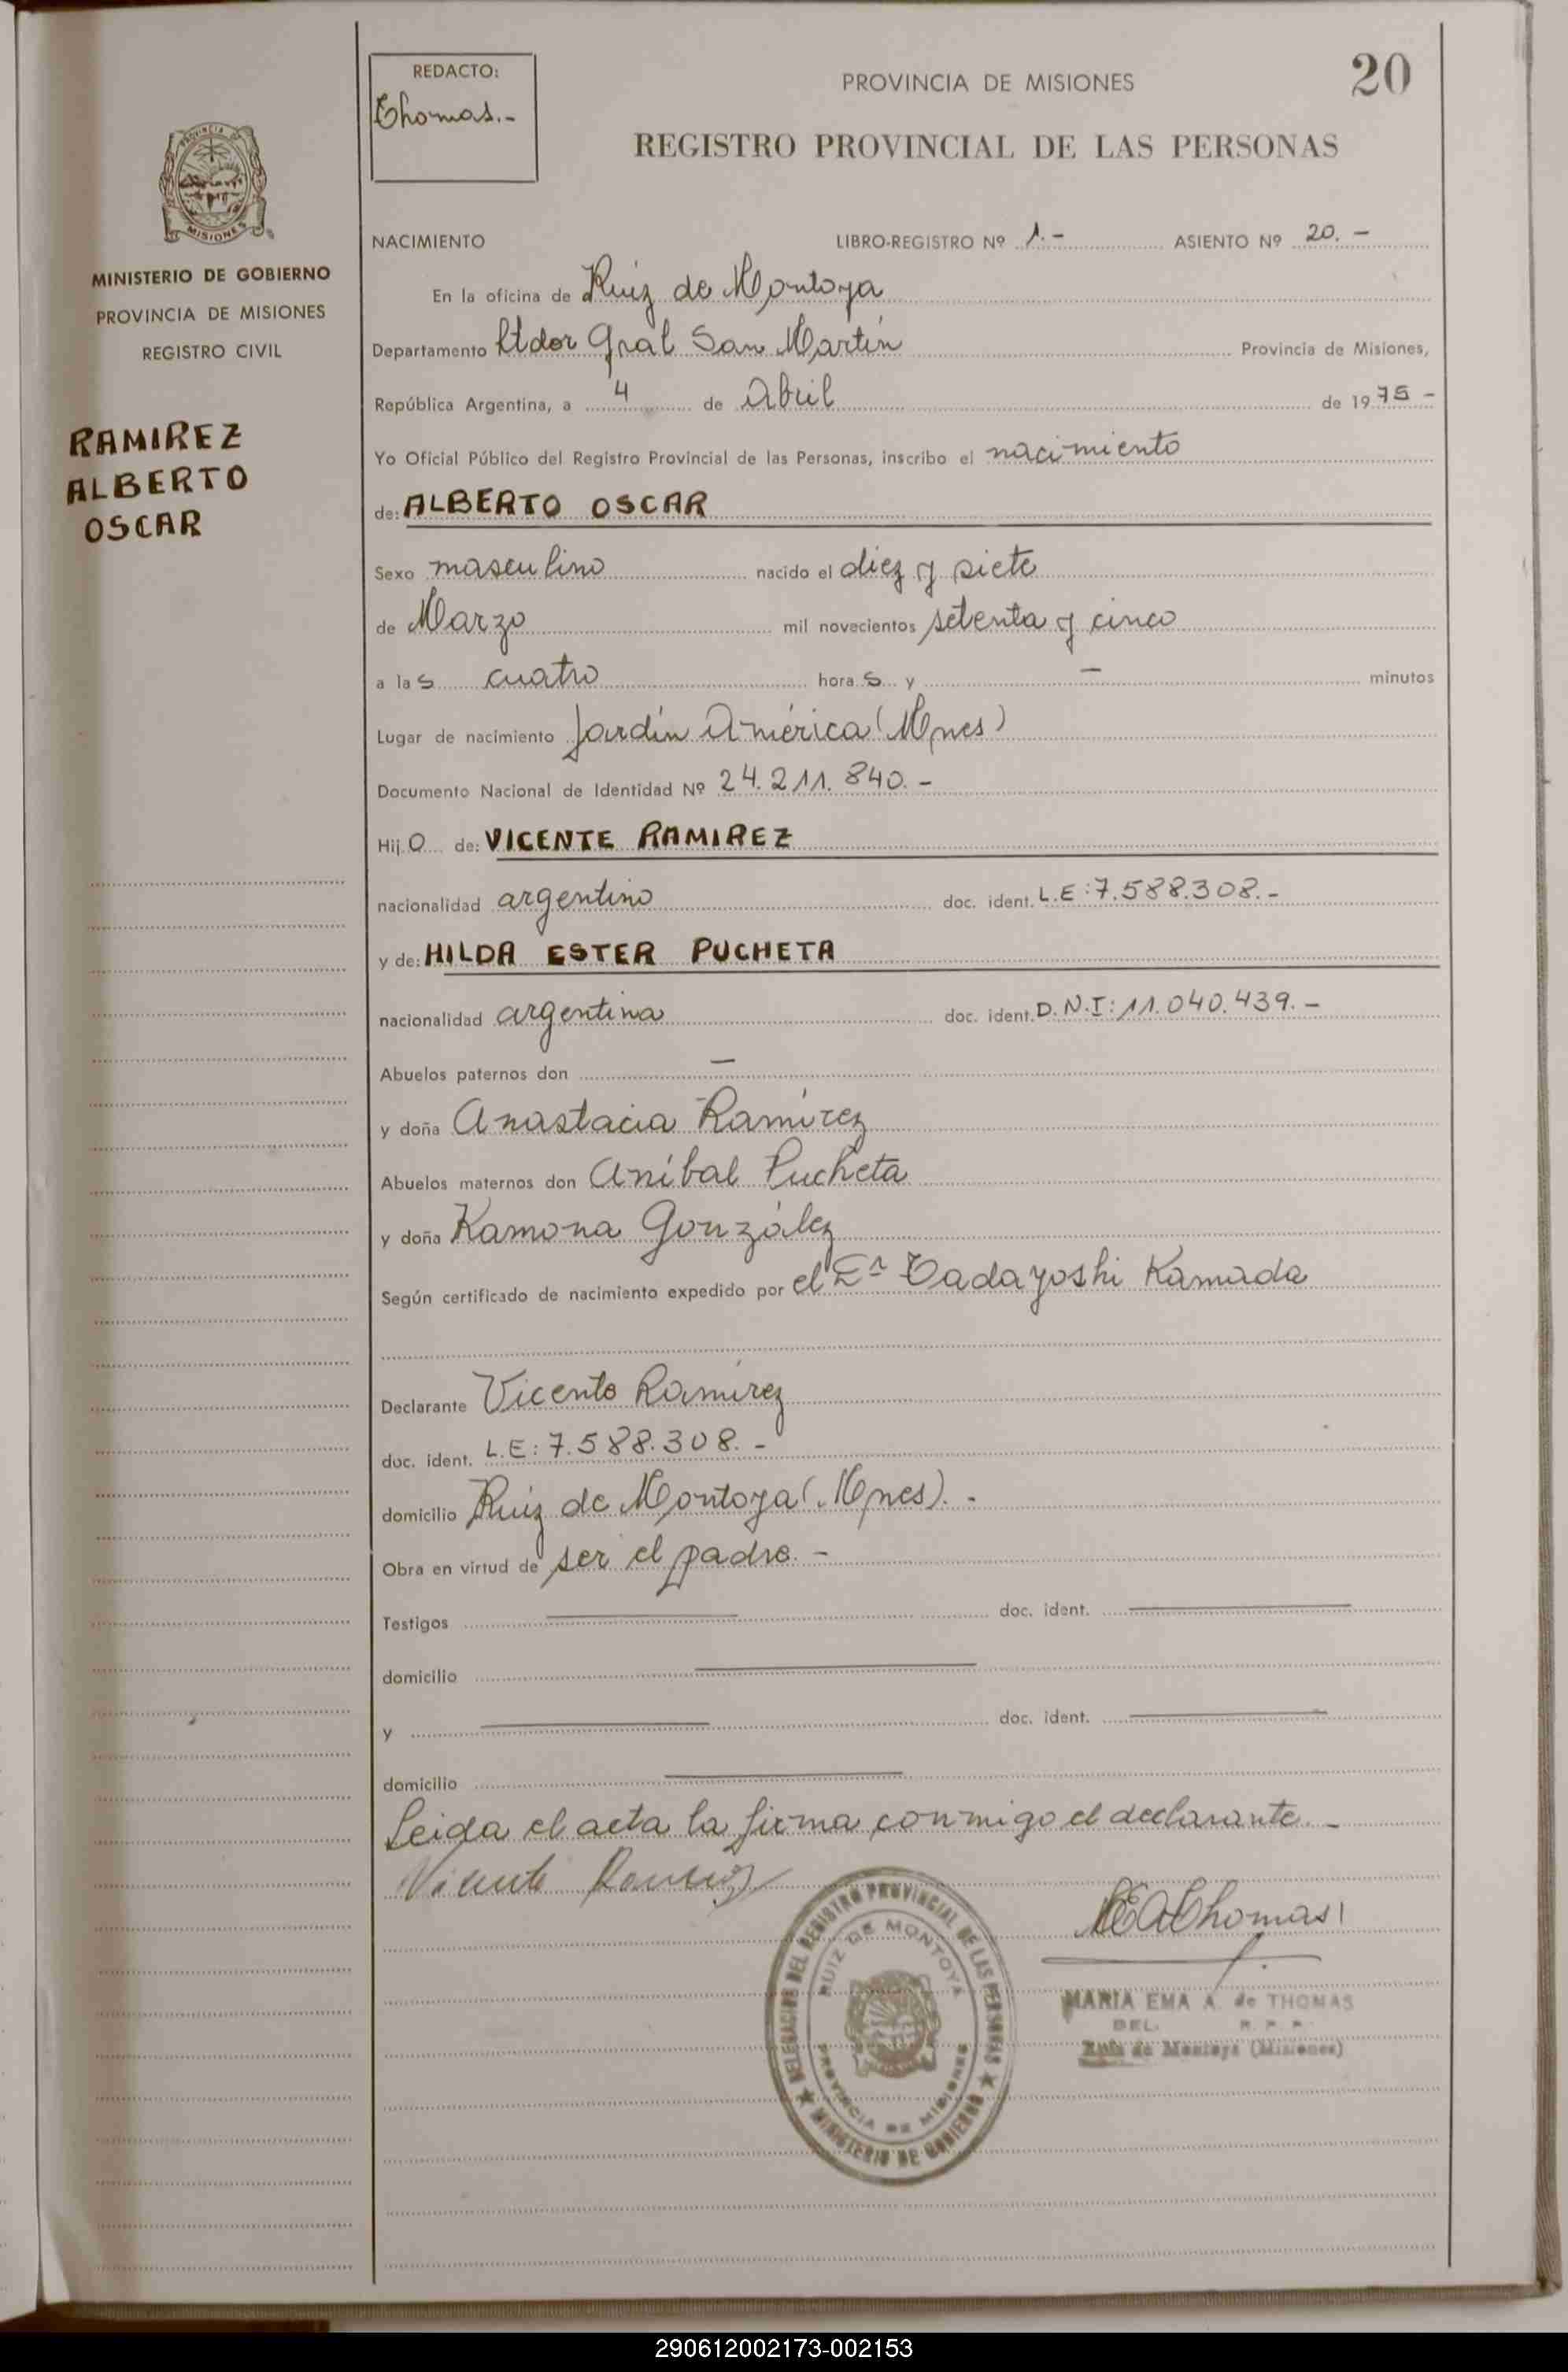 20
REDACTO:
Thomas.-
PROVINCIA DE MISIONES
REGISTRO PROVINCIAL DE LAS PERSONAS
MISIONES
MINISTERIO DE GOBIERNO
PROVINCIA DE MISIONES
REGISTRO CIVIL
RAMIREZ
ALBERTO
OSCAR
NACIMIENTO LIBRO-REGISTRO Nº 1.- ASIENTO Nº 20.-
En la oficina de Ruiz de Montoya
Departamento Ltdor Gral San Martín Provincia de Misiones,
República Argentina, a 4 de Abril de 1975-
Yo Oficial Público del Registro Provincial de las Personas, inscribo el nacimiento
de: ALBERTO OSCAR
Sexo masculino nacido el diez y siete
de Marzo mil novecientos setenta y cinco
a las cuatro horas y - minutos
Lugar de nacimiento Jardín América (Mnes)
Documento Nacional de Identidad Nº 24.211.840.-
Hijo de: VICENTE RAMIREZ
nacionalidad argentino doc. ident. L.E:7.588.308.-
y de: HILDA ESTER PUCHETA
nacionalidad argentina doc. ident. D.N.I:11.040.439.-
Abuelos paternos don -
y doña Anastacia Ramírez
Abuelos maternos don Aníbal Pucheta
y doña Ramona González
Según certificado de nacimiento expedido por el Tadayoshi Kamada
Declarante Vicente Ramírez
doc. ident. L.E:7.588.308.-
domicilio Ruiz de Montoya (Mnes).-
Obra en virtud de ser el padre.-
Testigos doc. ident.
domicilio
y doc. ident.
domicilio
Leida el acta la firma conmigo el declarante.-
Vicente Ramirez
MEAThomas
DELEGACION DEL REGISTRO PROVINCIAL DE LAS PERSONAS
RUIZ DE MONTOYA
PROVINCIA DE MISIONES
MINISTERIO DE GOBIERNO
MARIA EMA A. de THOMAS
DEL. R. P. P.
Ruiz de Montoya (Misiones)
290612002173-002153